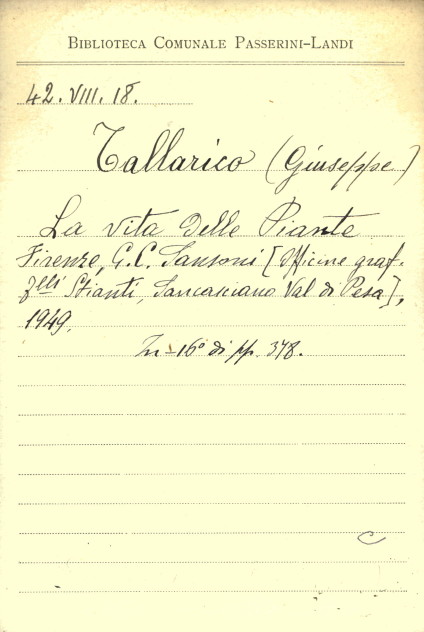 BIBLIOTECA COMUNALE PASSERINI-LANDI
42. VIII. 18.
Tallarico (Giuseppe)
La vita delle Piante
Firenze, G. C. Sansoni [Officine graf.
F.lli Stianti, Sancasciano Val di Pesa],
1949.
In-16° di pp. 378.
C